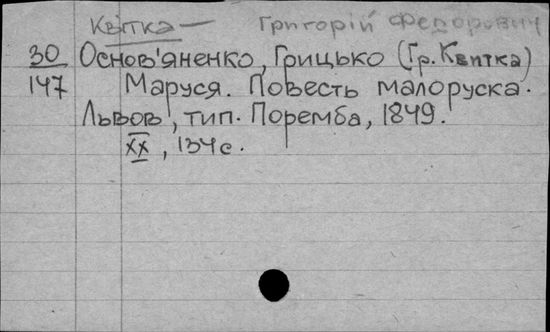 Квітка — Григорій Федорович
30 Основ'яненко, Грицько (Гр. Квитка)
147 Маруся. Повесть малоруска.
Львов, тип. Поремба, 1849.
XX, 134 с.